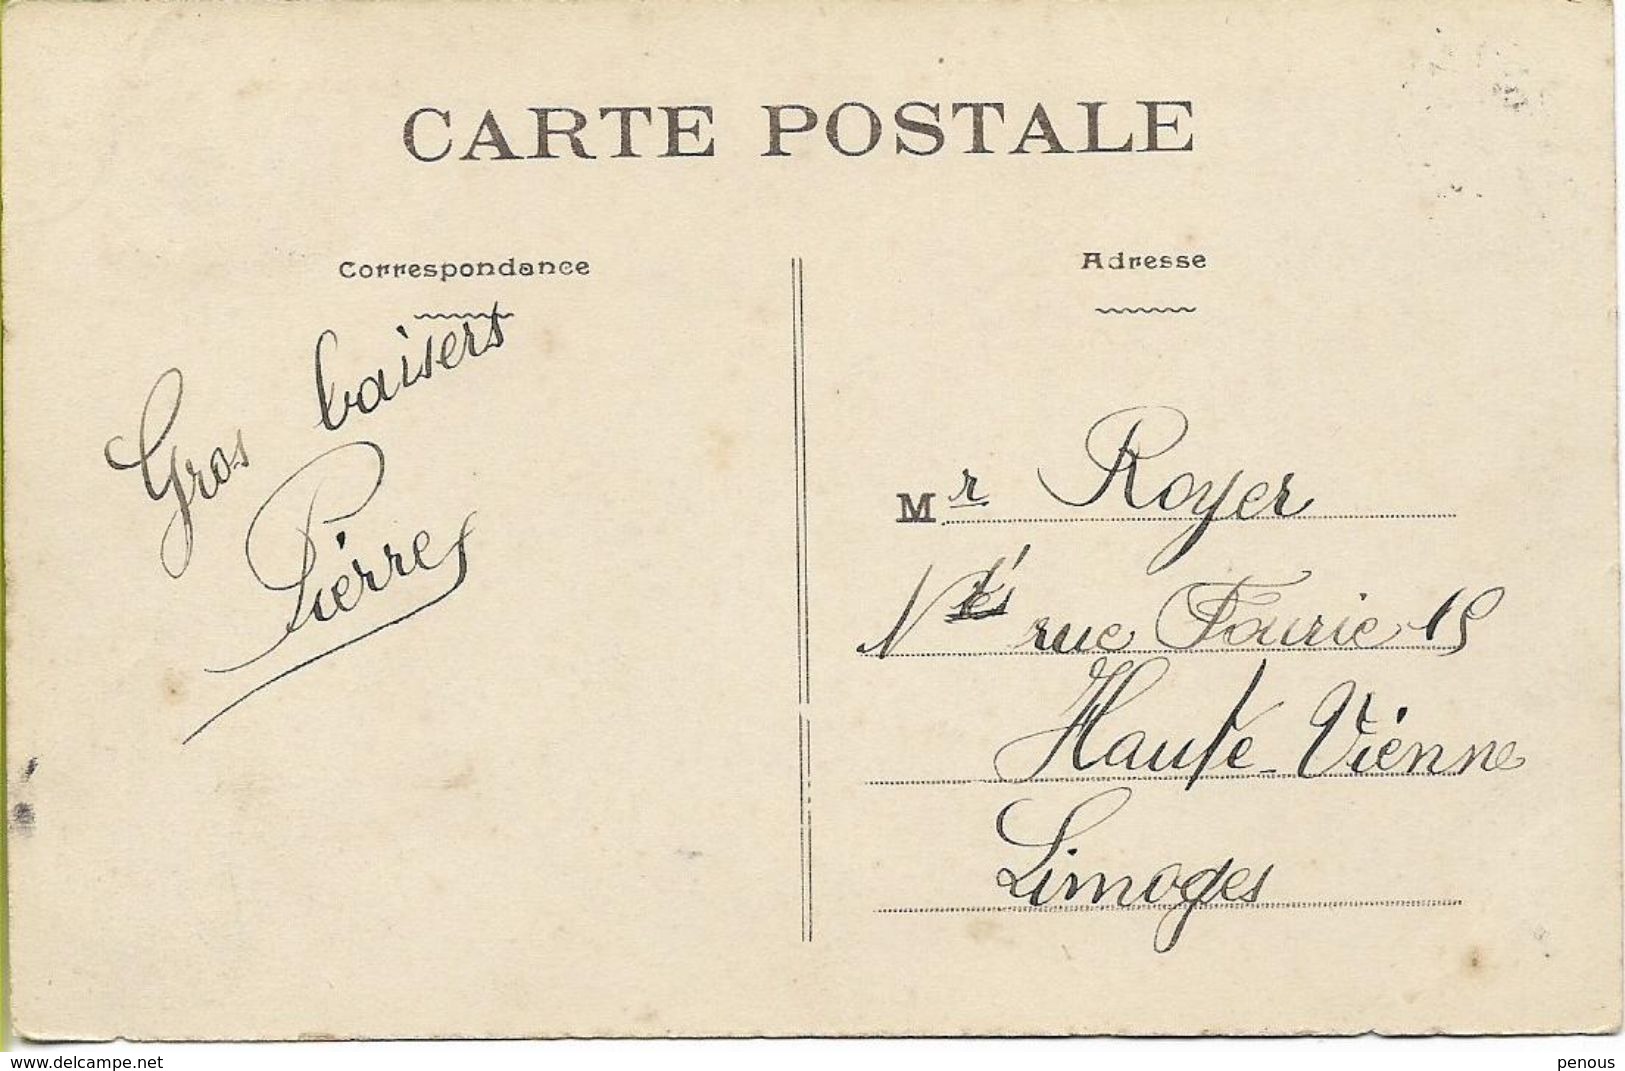 CARTE POSTALE
Correspondance
Gros baisers
Pierre
Adresse
Mr Royer
Nlle rue Fourie 15
Haute-Vienne
Limoges
www.delcampe.net
penous